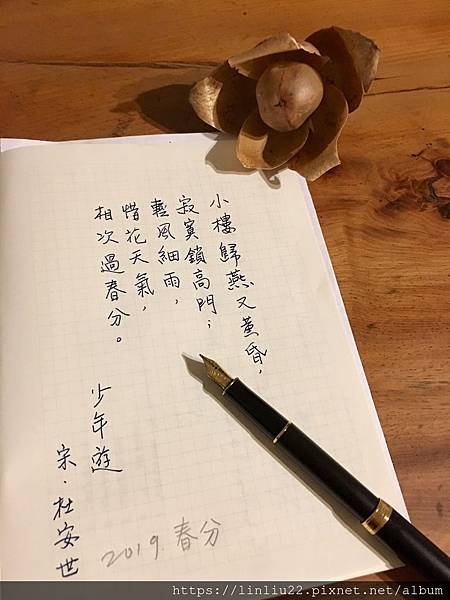 小樓歸燕又黃昏，
寂寞鎖高門；
輕風細雨，
惜花天氣，
相次過春分。
少年遊
宋．杜安世
2019 春分
https://linliu22.pixnet.net/album